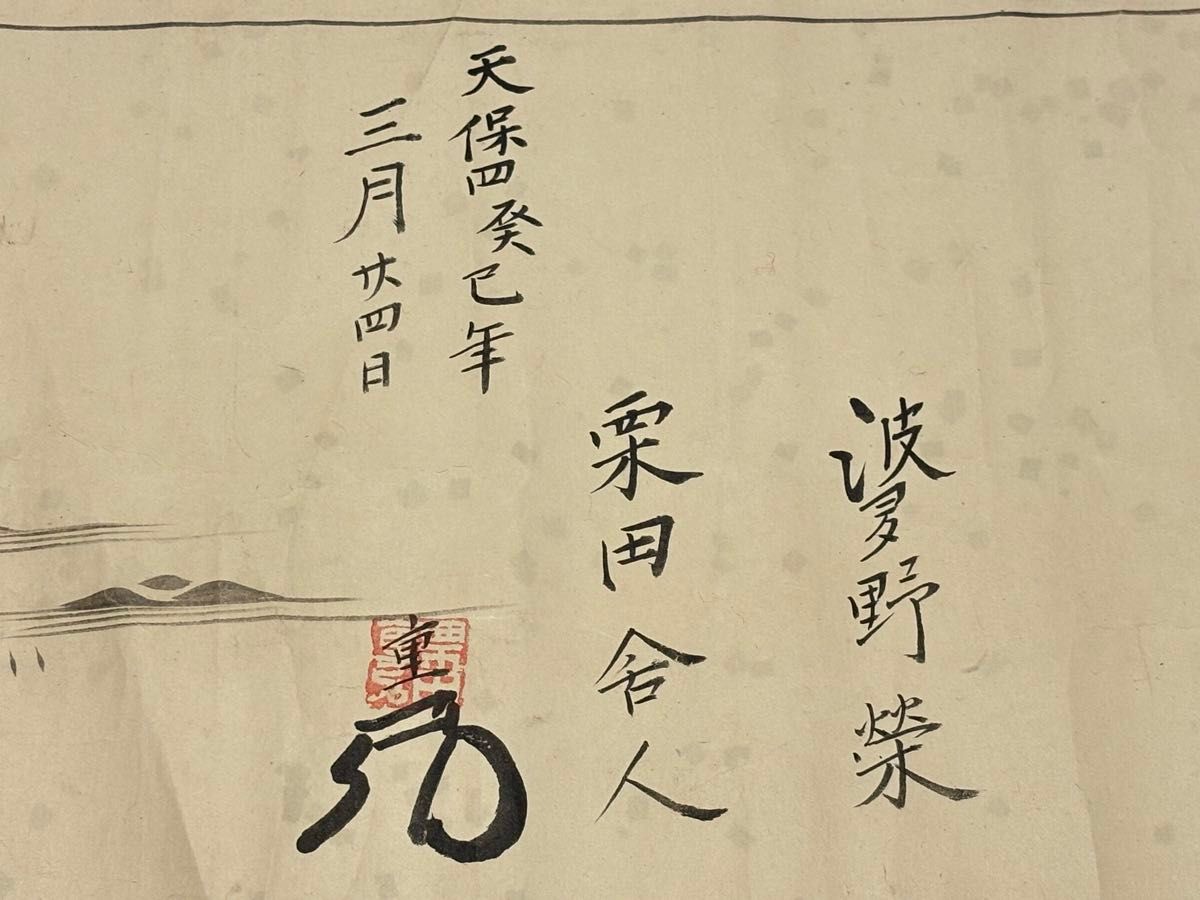 波多野榮
栗田舍人
天保四癸巳年
三月廿四日
重